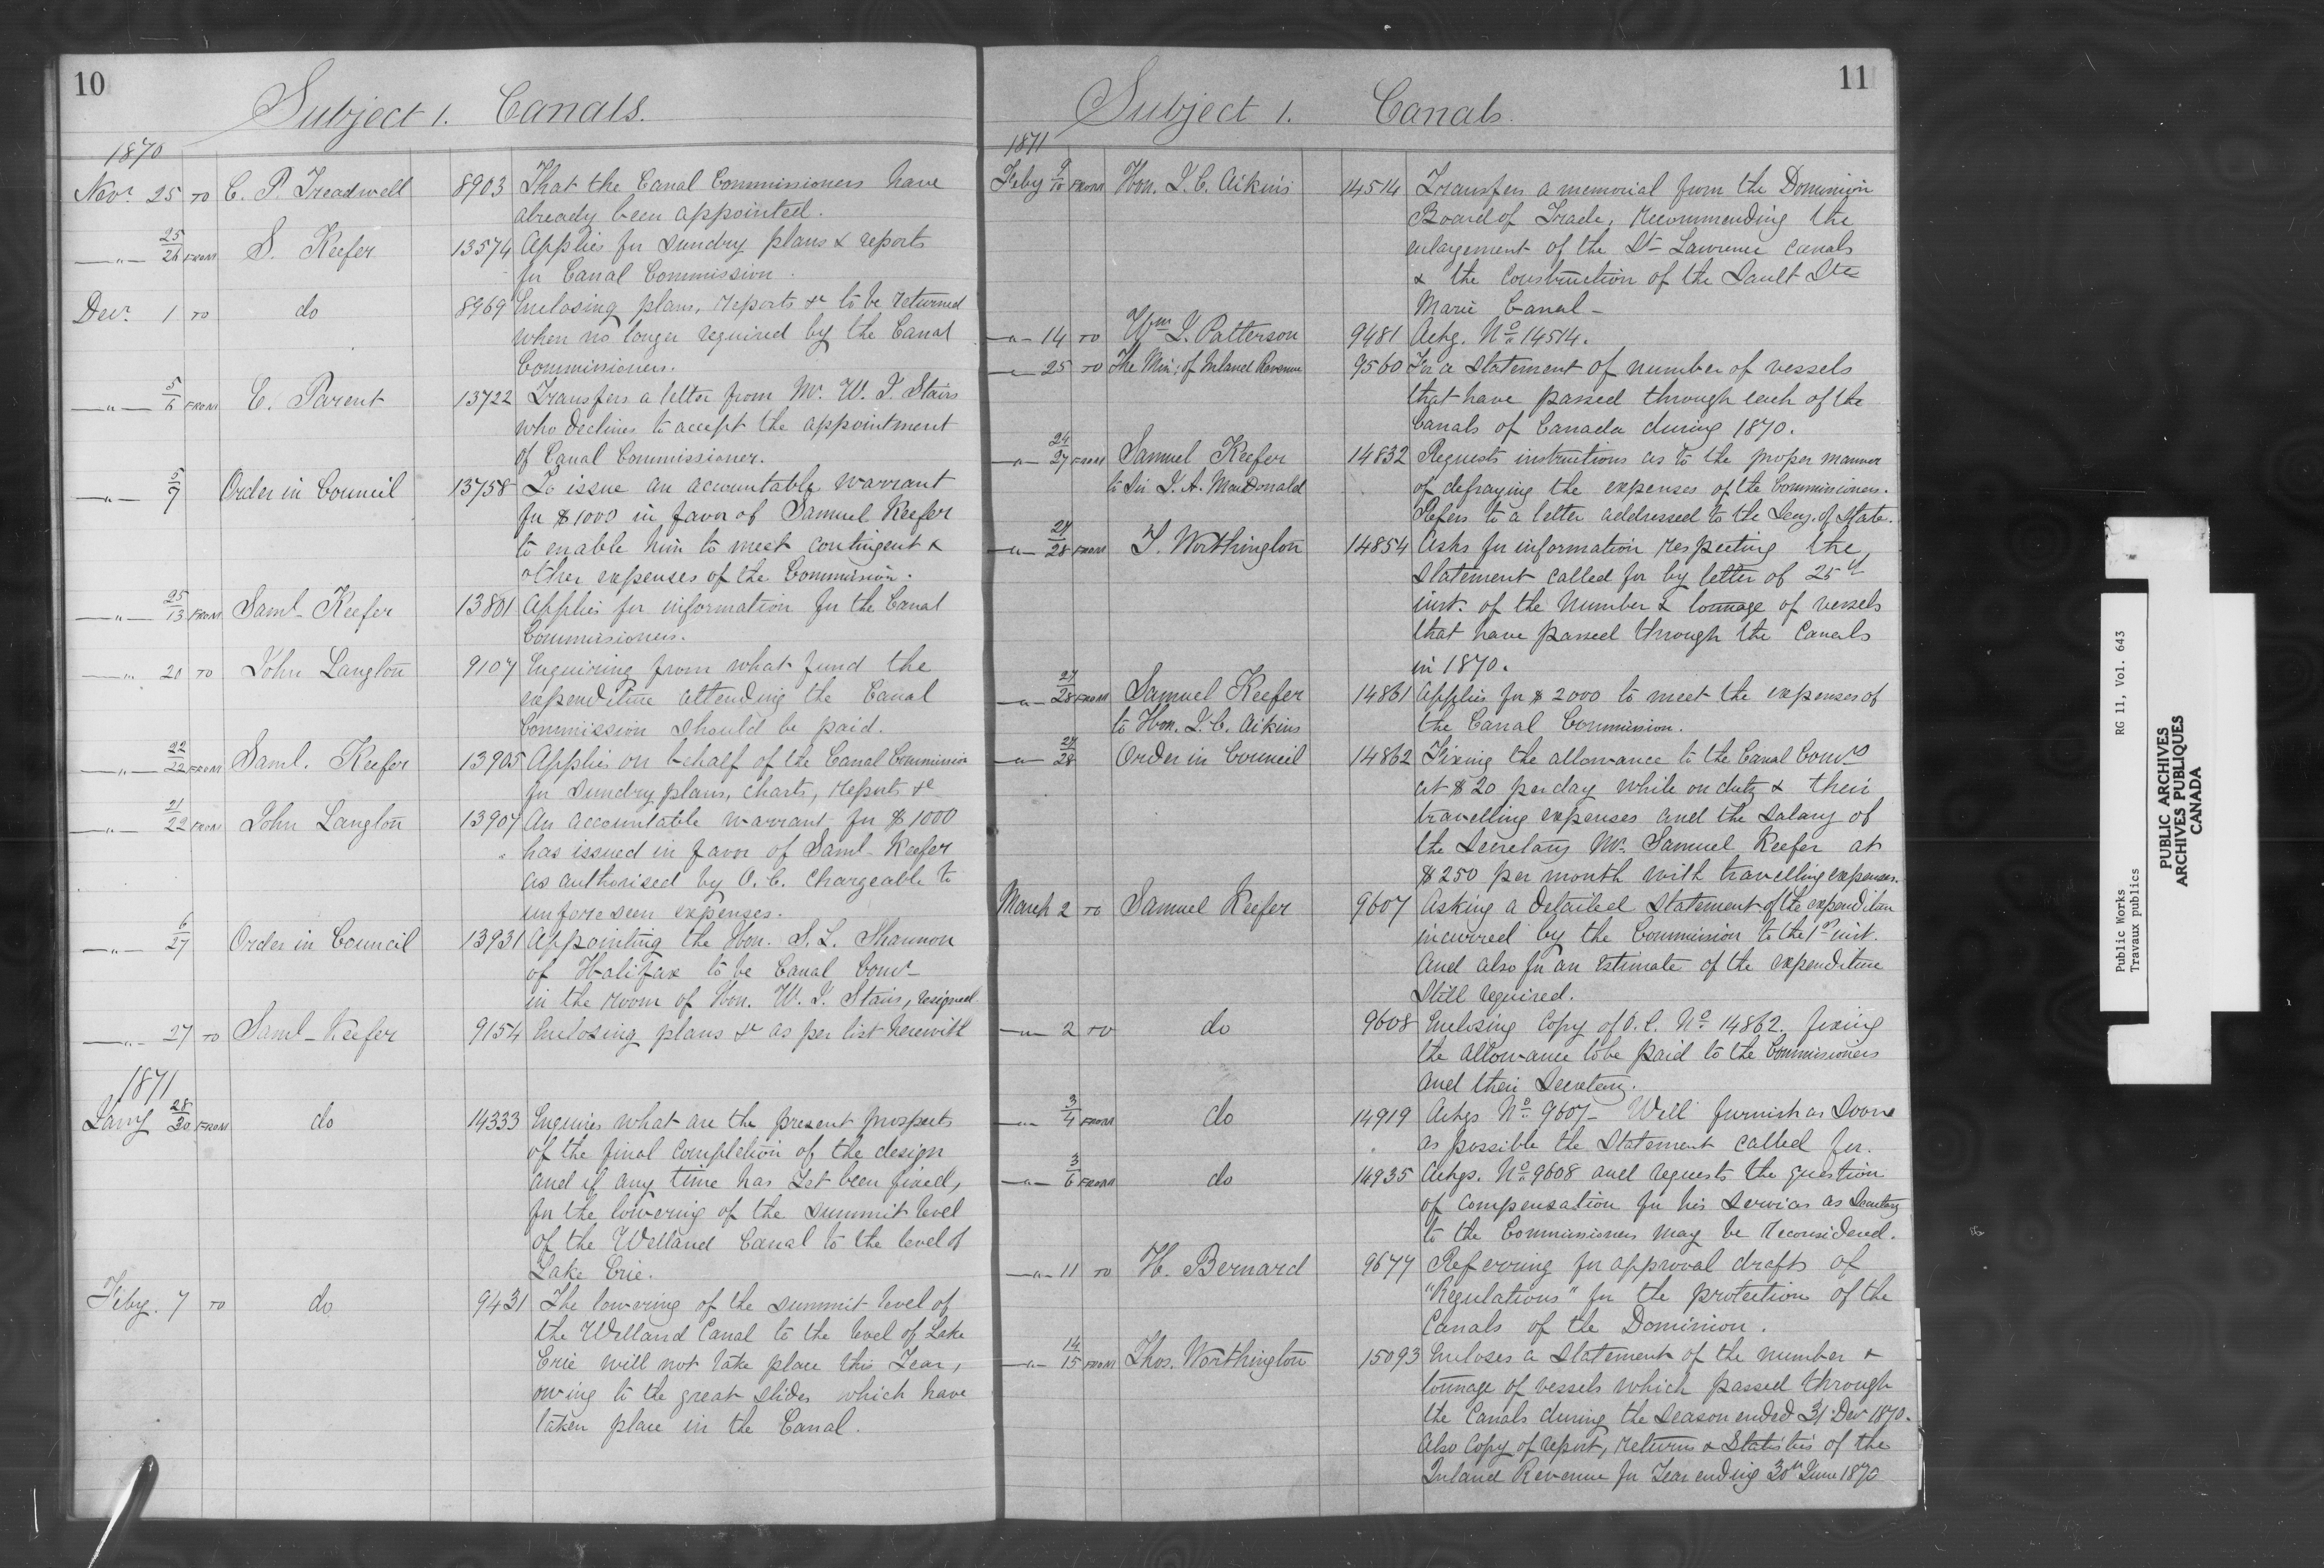 10
Subject 1. Canals.
1870
Novr 25 TO C. P. Treadwell 8903 That the Canal Commissioners have
already been appointed.
—"— 25/26 FROM S. Keefer 13574 Applies for sundry plans & reports
for Canal Commission.
Decr 1 TO do 8969 Enclosing plans, reports &c to be returned
when no longer required by the Canal
Commissioners.
—"— 5/6 FROM E. Parent 13722 Transfers a letter from Mr. W. J. Stairs
who declines to accept the appointment
of Canal Commissioner.
—"— 5/7 Order in Council 13758 To issue an accountable warrant
for $1000 in favor of Samuel Keefer
to enable him to meet contingent &
other expenses of the Commission.
—"— 25/13 FROM Saml Keefer 13801 Applies for information for the Canal
Commissioners.
—"— 20 TO John Langton 9107 Enquiring from what fund the
expenditure attending the Canal
Commission should be paid.
—"— 22/22 FROM Saml. Keefer 13905 Applies on behalf of the Canal Commission
for sundry plans, charts, reports &c
—"— 21/22 FROM John Langton 13907 An accountable warrant for $1000
has issued in favor of Saml Keefer
as authorised by O. C. chargeable to
unforeseen expenses.
—"— 6/27 Order in Council 13931 Appointing the Hon. S. L. Shannon
of Halifax to be Canal Comr
in the room of Hon. W. J. Stairs, resigned
—"— 27 TO Saml Keefer 9154 Enclosing plans &c as per list herewith
1871
Jany 28/30 FROM do 14333 Enquires what are the present prospects
of the final completion of the design
and if any time has yet been fixed,
for the lowering of the summit level
of the Welland Canal to the level of
Lake Erie.
Feby. 7 TO do 9431 The lowering of the summit level of
the Welland Canal to the level of Lake
Erie will not take place this Year,
owing to the great slides which have
taken place in the Canal.
11
Subject 1. Canals.
1871
Feby 9/10 FROM Hon. J. C. Aikins 14514 Transfers a memorial from the Dominion
Board of Trade, recommending the
enlargement of the St Lawrence canals
& the construction of the Sault Ste
Marie Canal—
—"— 14 TO Wm J. Patterson 9481 Ackg. No 14514.
—"— 25 TO The Min: of Inland Revenue 9560 For a statement of number of vessels
that have passed through each of the
Canals of Canada during 1870.
—"— 24/27 FROM Samuel Keefer 14832 Requests instructions as to the proper manner
to Sir J. A. MacDonald of defraying the expenses of the Commissioners.
Refers to a letter addressed to the Secy. of State.
—"— 27/28 FROM T. Worthington 14854 Asks for information respecting the
statement called for by letter of 25th
inst. of the number & tonnage of vessels
that have passed through the Canals
in 1870.
—"— 27/28 FROM Samuel Keefer 14861 Applies for $2000 to meet the expenses of
to Hon. J. C. Aikins the Canal Commission.
—"— 27/28 Order in Council 14862 Fixing the allowance to the Canal Comrs
at $20 per day while on duty & their
travelling expenses and the salary of
the Secretary Mr. Samuel Keefer at
$250 per month with travelling expenses.
March 2 TO Samuel Keefer 9607 Asking a detailed statement of the expenditure
incurred by the Commission to the 1st inst.
and also for an estimate of the expenditure
still required.
—"— 2 TO do 9608 Enclosing Copy of O. C. No 14862. fixing
the allowance to be paid to the Commissioners
and their Secretary.
—"— 3/4 FROM do 14919 Ackgs No 9607— Will furnish as soon
as possible the statement called for.
—"— 3/6 FROM do 14935 Ackgs. No 9608 and requests the question
of compensation for his services as Secretary
to the Commissioners may be reconsidered.
—"— 11 TO H. Bernard 9677 Referring for approval drafts of
"Regulations" for the protection of the
Canals of the Dominion.
—"— 14/15 FROM Thos. Worthington 15093 Encloses a statement of the number &
tonnage of vessels which passed through
the Canals during the season ended 31 Decr 1870.
Also copy of report, returns & Statistics of the
Inland Revenue for Year ending 30th June 1870
Public Works RG 11, Vol. 643
Travaux publics
PUBLIC ARCHIVES
ARCHIVES PUBLIQUES
CANADA